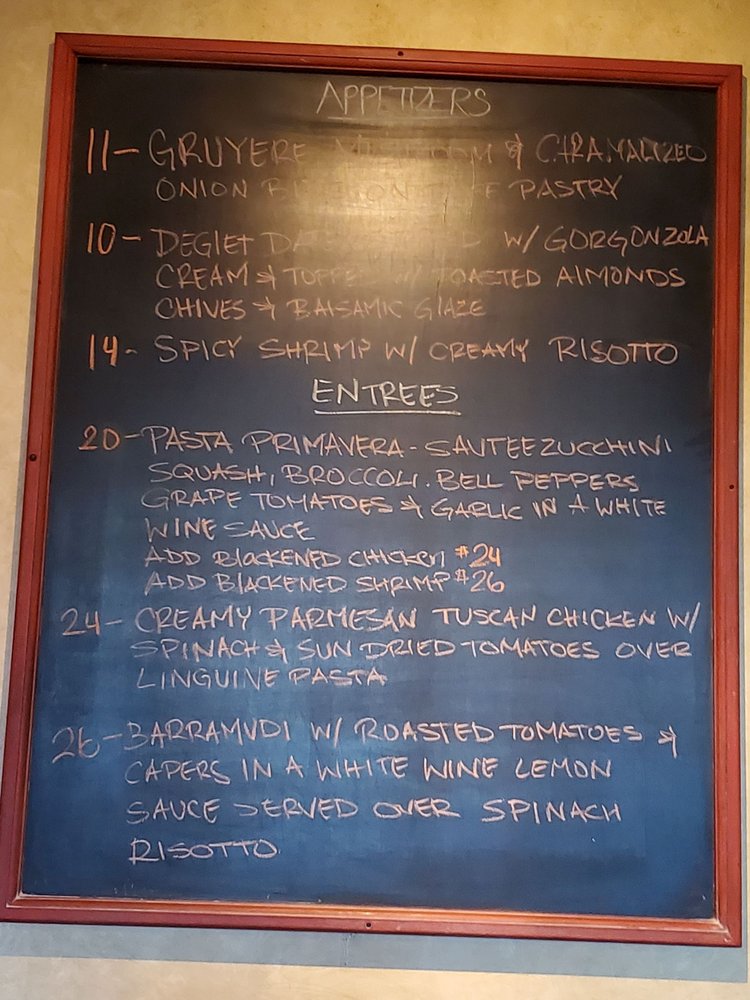 APPETIZERS
11- GRUYERE & CARAMALIZED
ONION PASTRY
10- DEGLET W/ GORGONZOLA
CREAM & W/ TOASTED ALMONDS
CHIVES & BALSAMIC GLAZE
14- SPICY SHRIMP W/ CREAMY RISOTTO
ENTREES
20- PASTA PRIMAVERA - SAUTEE ZUCCHINI
SQUASH, BROCCOLI. BELL PEPPERS
GRAPE TOMATOES & GARLIC IN A WHITE
WINE SAUCE
ADD BLACKENED CHICKEN $24
ADD BLACKENED SHRIMP $26
24- CREAMY PARMESAN TUSCAN CHICKEN W/
SPINACH & SUN DRIED TOMATOES OVER
LINGUINE PASTA
26- BARRAMUDI W/ ROASTED TOMATOES &
CAPERS IN A WHITE WINE LEMON
SAUCE SERVED OVER SPINACH
RISOTTO